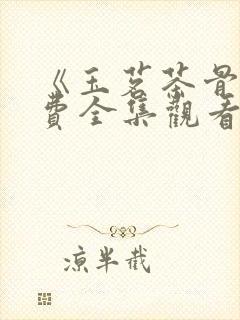 《玉茗茶骨
費全集觀看
凉半截